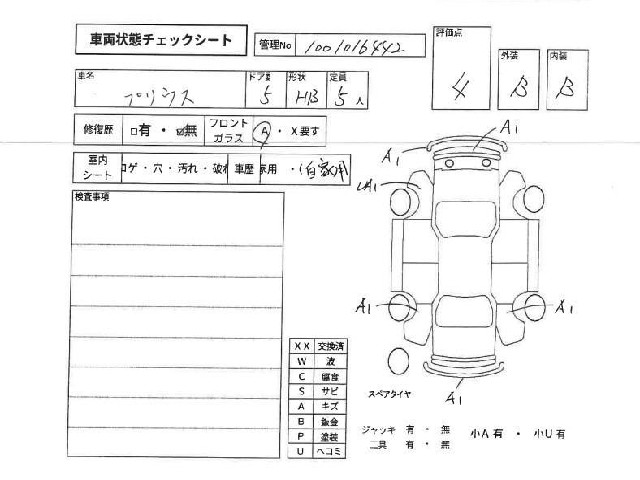 車両状態チェックシート
管理No 1001016442
評価点 4
外装 B
内装 B
車名 プリウス
ドア数 5
形状 HB
定員 5人
修復歴 □有・☑無
フロントガラス A・X要す
室内シート コゲ・穴・汚れ・破れ
車歴 家用・(自家用)
検査事項
A1
A1
UA1
A1
A1
A1
XX 交換済
W 波
C 腐食
S サビ
A キズ
B 鈑金
P 塗装
U ヘコミ
スペアタイヤ
ジャッキ 有・無
工具 有・無
小A有・小U有